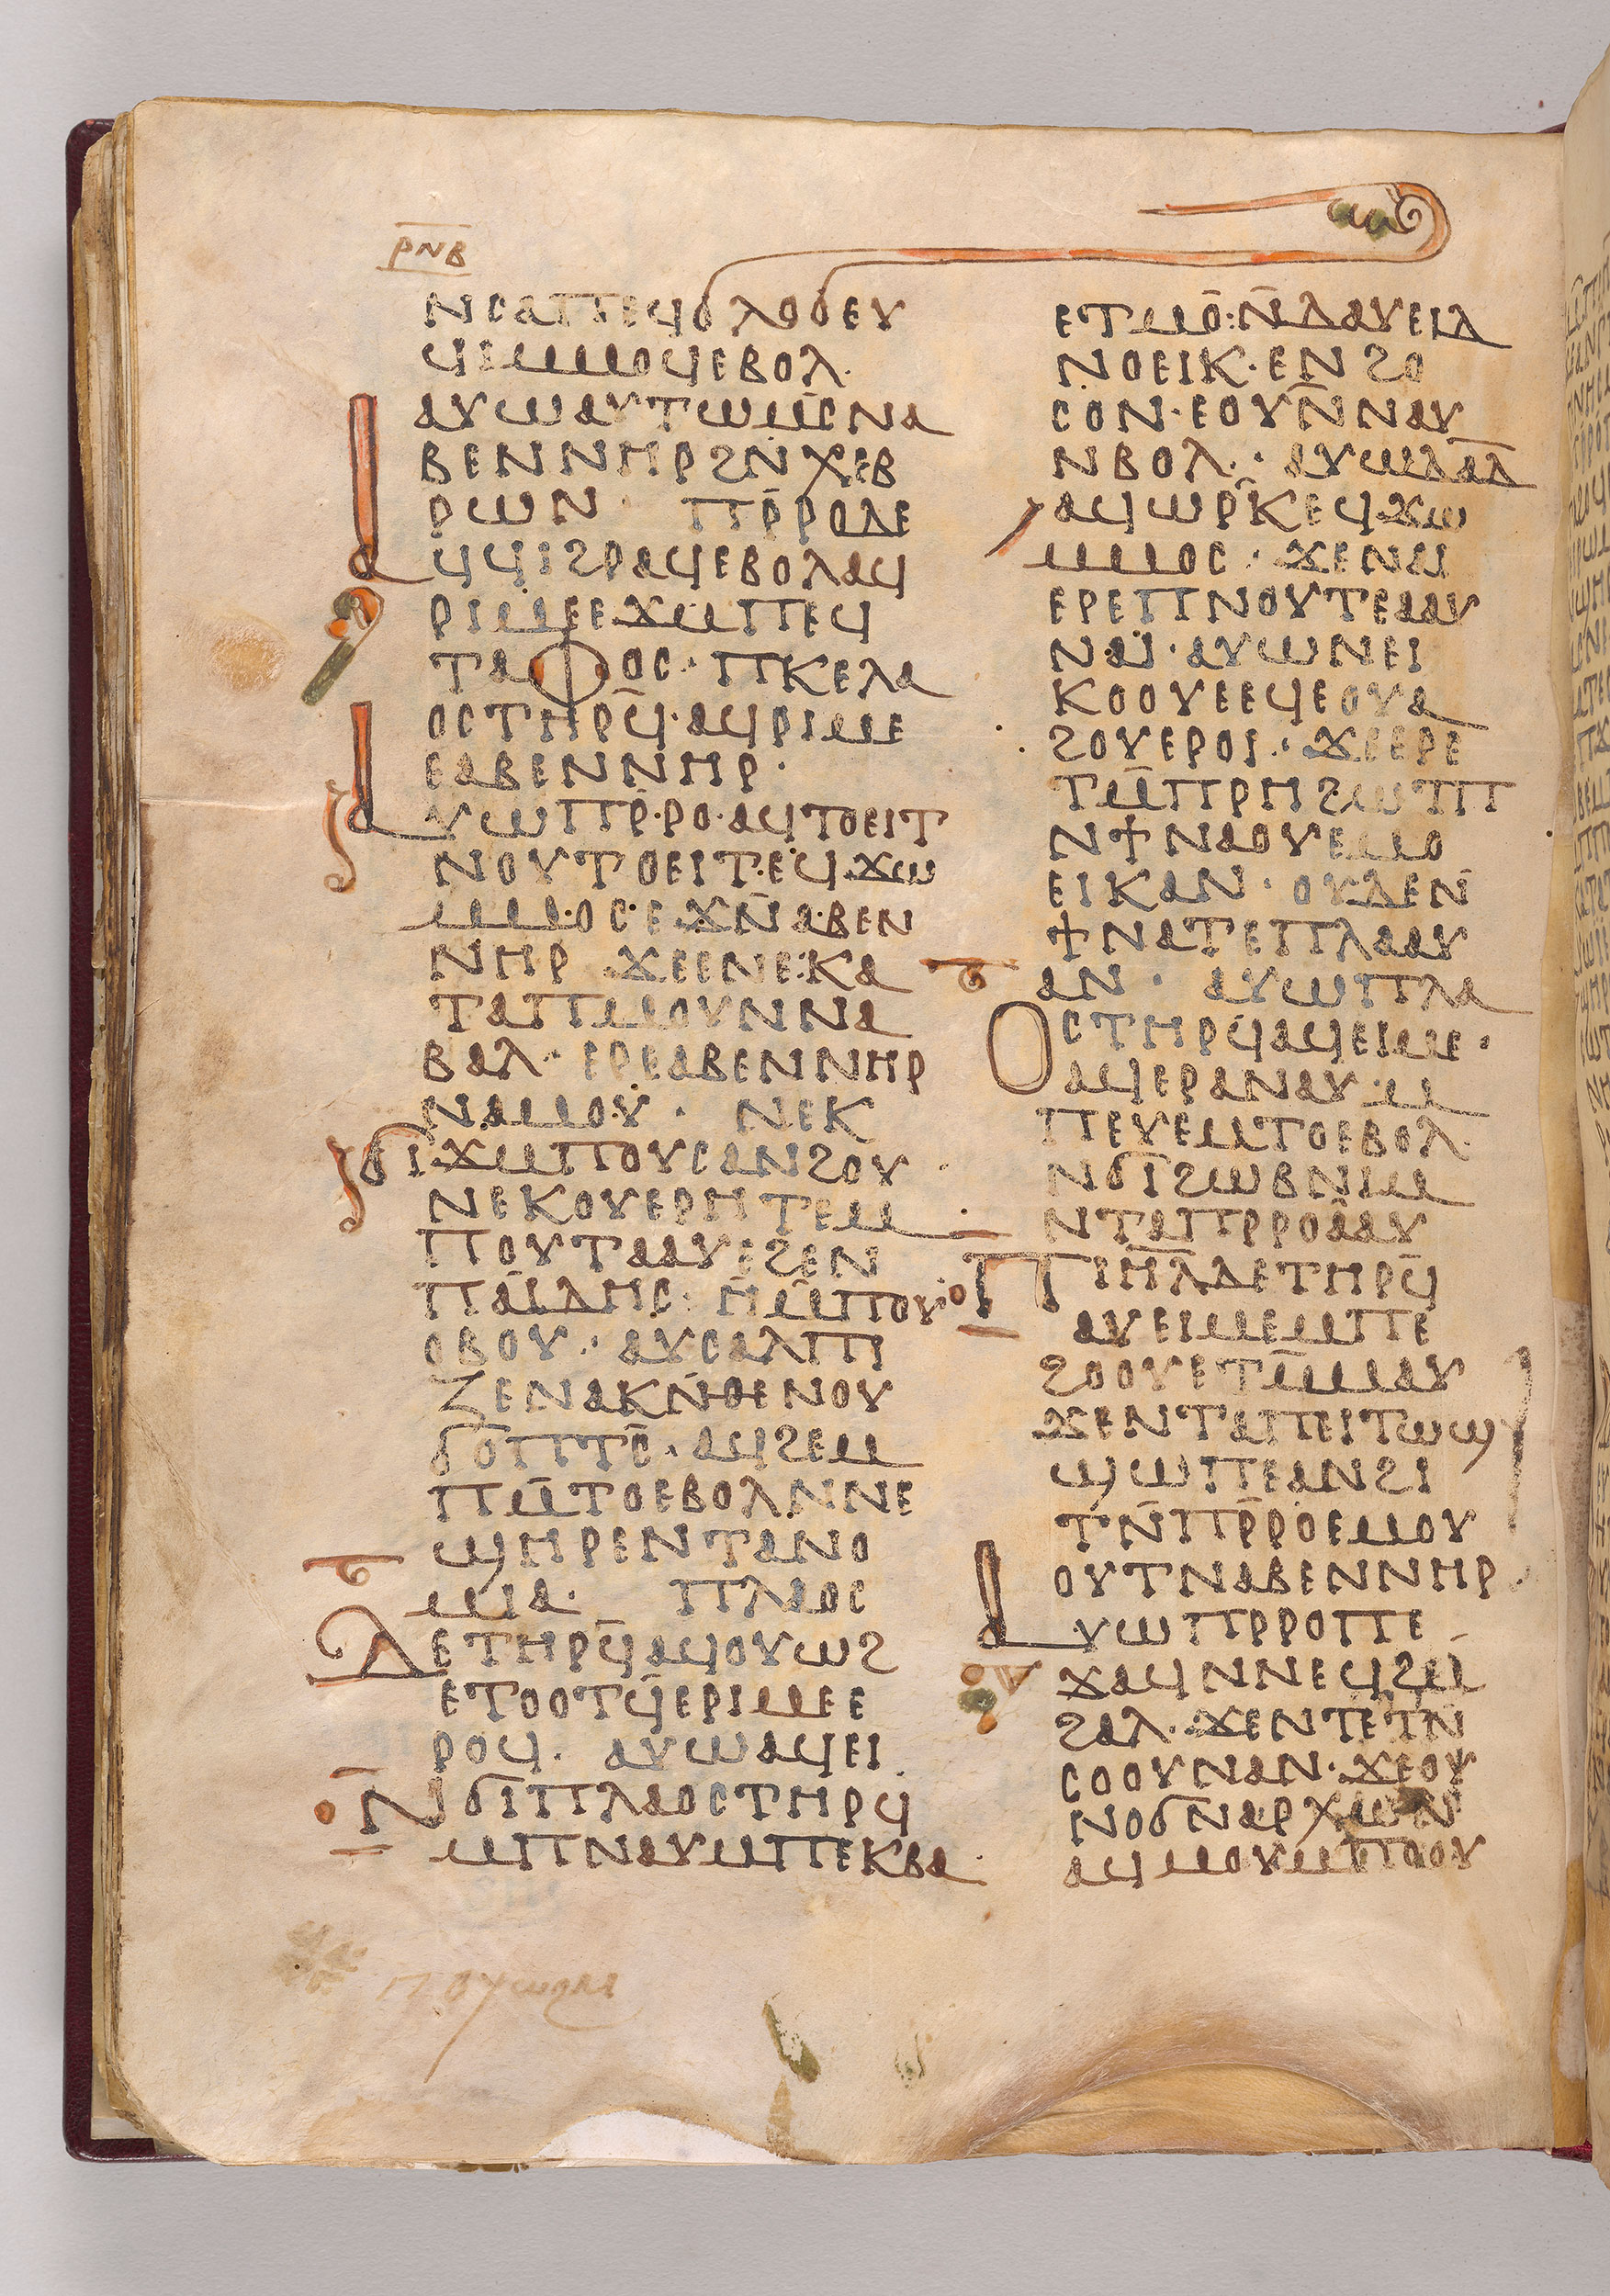 ⲣⲛⲃ
ⲛⲥⲁⲡⲉϥϭⲗⲟϭⲉⲩ
ϥⲓⲙⲙⲟϥⲉⲃⲟⲗ·
ⲁⲩⲱⲁⲩⲧⲱⲙ̅ⲥⲛⲁ
ⲃⲉⲛⲛⲏⲣϩⲛ̅ⲭⲉⲃ
ⲣⲱⲛ· ⲡⲣ̅ⲣⲟⲇⲉ
ⲁϥϥⲓϩⲣⲁϥⲉⲃⲟⲗⲁϥ
ⲣⲓⲙⲉⲉϫⲙⲡⲉϥ
ⲧⲁⲫⲟⲥ· ⲡⲕⲉⲗⲁ
ⲟⲥⲧⲏⲣϥ̅·ⲁϥⲣⲓⲙⲉ
ⲉⲁⲃⲉⲛⲛⲏⲣ·
ⲁⲩⲱⲡⲣ̅·ⲣⲟ·ⲁϥⲧⲟⲉⲓⲧ
ⲛⲟⲩⲧⲟⲉⲓⲧ·ⲉϥϫⲱ
ⲙⲙ·ⲟⲥ·ⲉϫⲛ̅ⲁ·ⲃⲉⲛ
ⲛⲏⲣ ϫⲉⲉⲛⲉ·ⲕⲁ
ⲧⲁⲡⲙⲟⲩⲛⲛⲁ
ⲃⲁⲗ· ⲉⲣⲉⲁⲃⲉⲛⲛⲏⲣ
ⲛⲁⲙⲟⲩ· ⲛⲉⲕ
ϭⲓϫⲙⲡⲟⲩⲥⲁⲛϩⲟⲩ
ⲛⲉⲕⲟⲩⲉⲣⲏⲧⲉⲙ
ⲡⲟⲩⲧⲁⲁⲩⲉϩⲉⲛ
ⲡⲁⲓⲇⲏⲥ· ⲏ̅ⲙ̅ⲡⲟⲩ
ⲟⲃⲟⲩ· ⲁⲩⲥⲁⲗⲡⲓ
ⲍⲉⲛⲁⲕⲛ̅ⲑⲉⲛⲟⲩ
ϭⲟⲡⲧⲥ̅·ⲁϥϩⲉⲙ
ⲡⲙ̅ⲧⲟⲉⲃⲟⲗⲛⲛⲉ
ϣⲏⲣⲉⲛⲧⲁⲛⲟ
ⲙⲓⲁ· ⲡⲗⲁⲟⲥ
ⲇⲉⲧⲏⲣϥ̅ⲁϥⲟⲩⲱϩ
ⲉⲧⲟⲟⲧϥ̅ⲉⲣⲓⲙⲉⲉ
ⲣⲟϥ· ⲁⲩⲱⲁϥⲉⲓ
ⲛϭⲓⲡⲗⲁⲟⲥⲧⲏⲣϥ
ⲙⲡⲛⲁⲩⲙⲡⲉⲕⲃⲁ
ⲉⲧⲙⲟ̅·ⲛ̅ⲇⲁⲩⲉⲓⲇ
ⲛⲟⲉⲓⲕ·ⲉⲛϩⲟ
ⲥⲟⲛ·ⲉⲟⲩⲛ̅ⲛⲁⲩ
ⲛⲃⲟⲗ· ⲁⲩⲱⲇⲁ̅ⲇ̅
ⲁϥⲱⲣ̅ⲕⲉϥϫⲱ
ⲙⲙⲟⲥ· ϫⲉⲛⲁⲓ
ⲉⲣⲉⲡⲛⲟⲩⲧⲉⲁⲁⲩ
ⲛⲁⲓ̈·ⲁⲩⲱⲛⲉⲓ
ⲕⲟⲟⲩⲉⲉϥⲉⲟⲩⲁ
ϩⲟⲩⲉⲣⲟⲓ· ϫⲉⲉⲣⲉ
ⲧⲙ̅ⲡⲣⲏϩⲱⲧⲡ
ⲛϯⲛⲁⲟⲩⲉⲙⲟ
ⲉⲓⲕⲁⲛ· ⲟⲩⲇⲉⲛ̅
ϯⲛⲁⲧⲉⲡⲗⲁⲁⲩ
ⲁⲛ· ⲁⲩⲱⲡⲗⲁ
ⲟⲥⲧⲏⲣϥⲁϥⲉⲓⲙⲉ·
ⲁϥⲉⲣⲁⲛⲁⲩ·ⲙ
ⲡⲉⲩⲉⲙⲧⲟⲉⲃⲟⲗ·
ⲛϭⲓϩⲱⲃⲛⲓⲙ
ⲛⲧⲁⲡⲣⲣⲟⲁⲁⲩ
ⲡⲓⲏ̅ⲗ̅ⲇⲉⲧⲏⲣϥ̅
ⲁⲩⲉⲓⲙⲉⲙⲡⲉ
ϩⲟⲟⲩⲉⲧⲙ̅ⲙⲁⲩ
ϫⲉⲛⲧⲁⲡⲉⲓⲧⲱϣ
ϣⲱⲡⲉⲁⲛϩⲓ
ⲧⲛ̅ⲡⲣ̅ⲣⲟⲉⲙⲟⲩ
ⲟⲩⲧⲛⲁⲃⲉⲛⲛⲏⲣ
ⲁⲩⲱⲡⲣⲣⲟⲡⲉ
ϫⲁϥⲛⲛⲉϥϩⲙ̅
ϩⲁⲗ·ϫⲉⲛⲧⲉⲧⲛ̅
ⲥⲟⲟⲩⲛⲁⲛ·ϫⲉⲟⲩ
ⲛⲟϭⲛⲁⲣⲭⲱⲛ
ⲁϥⲙⲟⲩⲙⲡⲟⲟⲩ